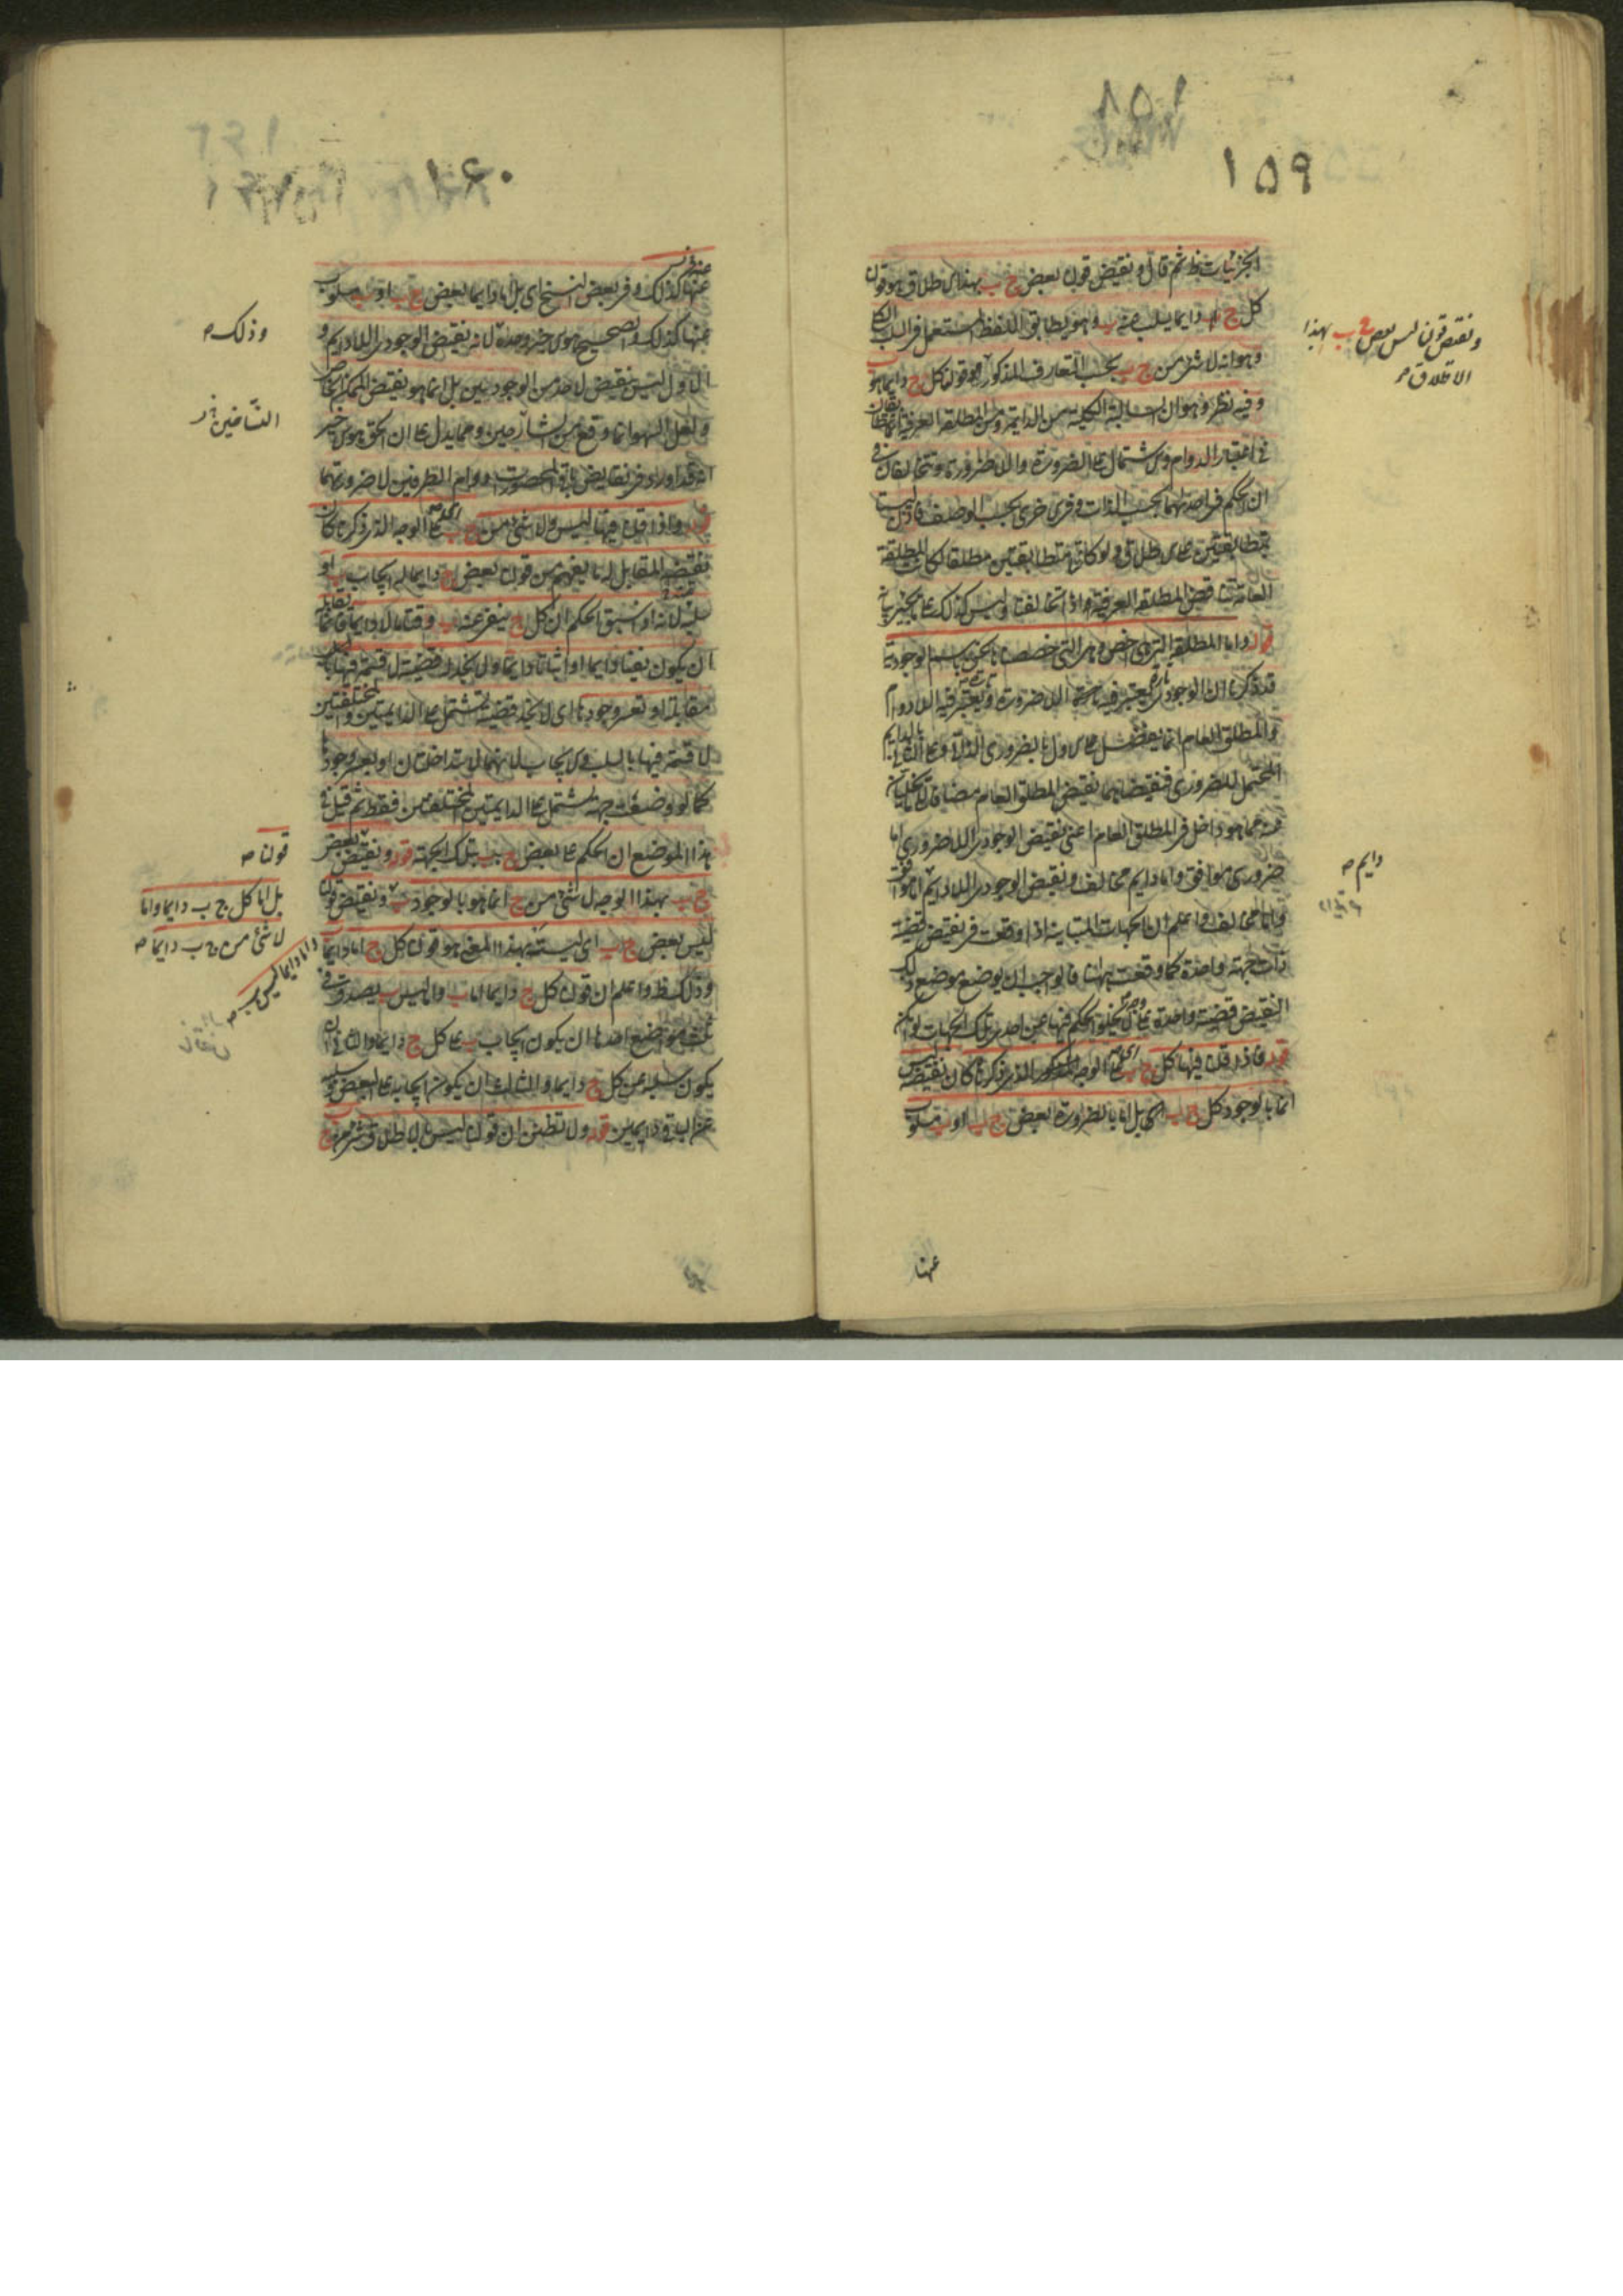 ١٥٩
الجزئيات ظ ثم قال ونقيض قولنا بعض ج ب بهذا الاطلاق هو قولنا
كل ج دايما يسلب عنه ب وهو يطابق اللفظ المستعمل في السلب الكلى
وهو انه لا شئ من ج ب بحسب التعارف المذكور قولنا كل ج دايما هو ب
وفيه نظر وهو ان السالبة الكلية من الدايمة ومن المطلقة العرفية
في اعتبار الدوام والاشتمال على الضرورة واللاضرورة وتتخالفان في
ان الحكم في احديهما بحسب الذات وفي الاخرى بحسب الوصف فاذن ليستا
متطابقتين على الاطلاق ولو كانتا متطابقتين مطلقا لكانت المطلقة
العامة تناقض المطلقة العرفية اذا تخالفتا وليس كذلك
قوله واما المطلقة التى هى اخص وهى التى خصصناها نحن باسم الوجودية
قد ذكرنا ان الوجودى يعتبر فيه تارة اللاضرورة وتارة يعتبر فيه اللادوام
والمطلق العام انما يفضل على الاول بالضرورى الذاتى وعلى الثانى بالدايم
المحتمل للضرورى فنقيضاهما نقيض المطلق العام مضافا
هو داخل في المطلق العام اعنى نقيض الوجودى اللاضرورى اما
ضرورى موافق واما دايم مخالف ونقيض الوجودى اللادايم اما موافق
واما مخالف واعلم ان الجهات المتباينة اذا وقعت في نقيض قضية
ذات جهة واحدة كما وقعت ههنا فالواجب ان يوضع موضع ذلك
النقيض قضية واحدة على وجه لا يخلو الحكم فيها عن احد تلك الجهات
قوله فاذا قلنا فيها كل ج ب اى على الوجه المذكور الذى ذكرناه كان نقيضه ليس
انما بالوجود كل ج ب اى بل اما بالضرورة بعض ج ب او ب مسلوب
عنها
ونقيض قولنا ليس بعض ج ب بهذا
الاطلاق صح
دايم صح
١٦٠
عنها كذلك وفي بعض النسخ اى بل اما دايما بعض ج ب او ب مسلوب
عنها كذلك والصحيح هو الاخير وحده لانه نقيض الوجودى اللادايم و
الاول ليس نقيض لاحد من الوجوديين بل انما هو نقيض الممكن الخاص
ولعل السهو انما وقع من الشارحين ومما يدل على ان الحق هو الاخير
انه قد اورد في نقايض باقى المحصورات دوام الطرفين لا ضرورتهما
قوله واذا قلنا فيها ليس ولا شئ من ج ب اى على الوجه الذى ذكرناه كان
نقيضه المقابل له ما يفهم من قولنا بعض ج دايما له ايجاب ب او
سلبه لانه اذا سبق الحكم ان كل ج ينفى عنه ب وقتا ما لا دايما فانما يقابله
ان يكون نفيا دايما او اثباتا دايما ولا نجد قضية لا قسمة فيها
مقابلة او تعسر وجودها اى لا نجد قضية تشتمل على الدايمتين المختلفتين
لا قسمة فيها بالسلب والايجاب لانهما لا يتداخلان او يعسر وجودها
كما لو وضعت جهة تشتمل على الدايمتين المختلفتين فقط ثم قيل في
هذا الموضع ان الحكم على بعض ج ب بتلك الجهة قوله ونقيض بعض
ج ب بهذا الوجه لا شئ من ج انما هو بالوجود ب ونقيض قولنا
ليس بعض ج ب اى ليسية بهذا المعنى هو قولنا كل ج اما دايما
وذلك ظ واعلم ان قولنا كل ج دايما اما ب واما ليس ب يصدق في
ثلث مواضع احدها ان يكون ايجاب ب على كل ج دايما والثانى ان
يكون سلبه عن كل ج دايما والثالث ان يكون ايجابه على البعض وسلبه
عن الباقى دايمين قوله ولا تظنن ان قولنا ليس بالاطلاق شئ من ج
وذلك صح
قولنا صح
بل اما كل ج ب دايما واما
لا شئ من ج ب دايما صح
واما دايما ليس ب صح